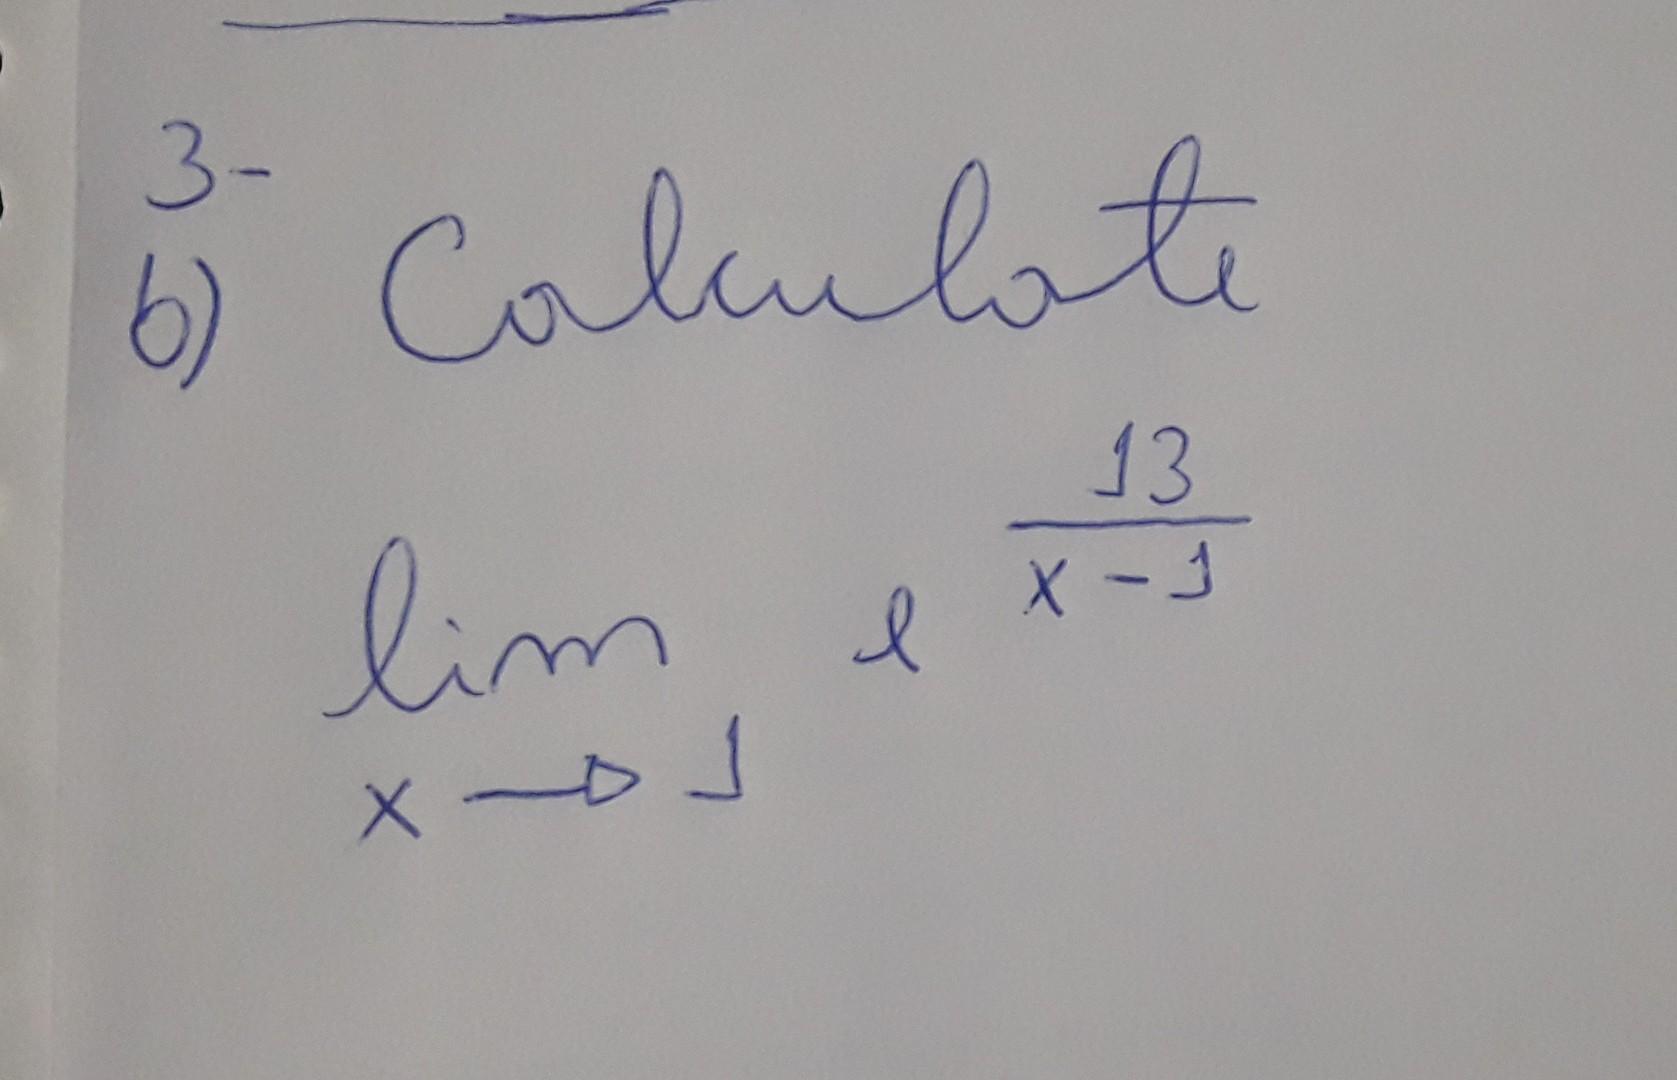 3-
b) Calculate
lim e^{\frac{13}{x-1}}
x → 1